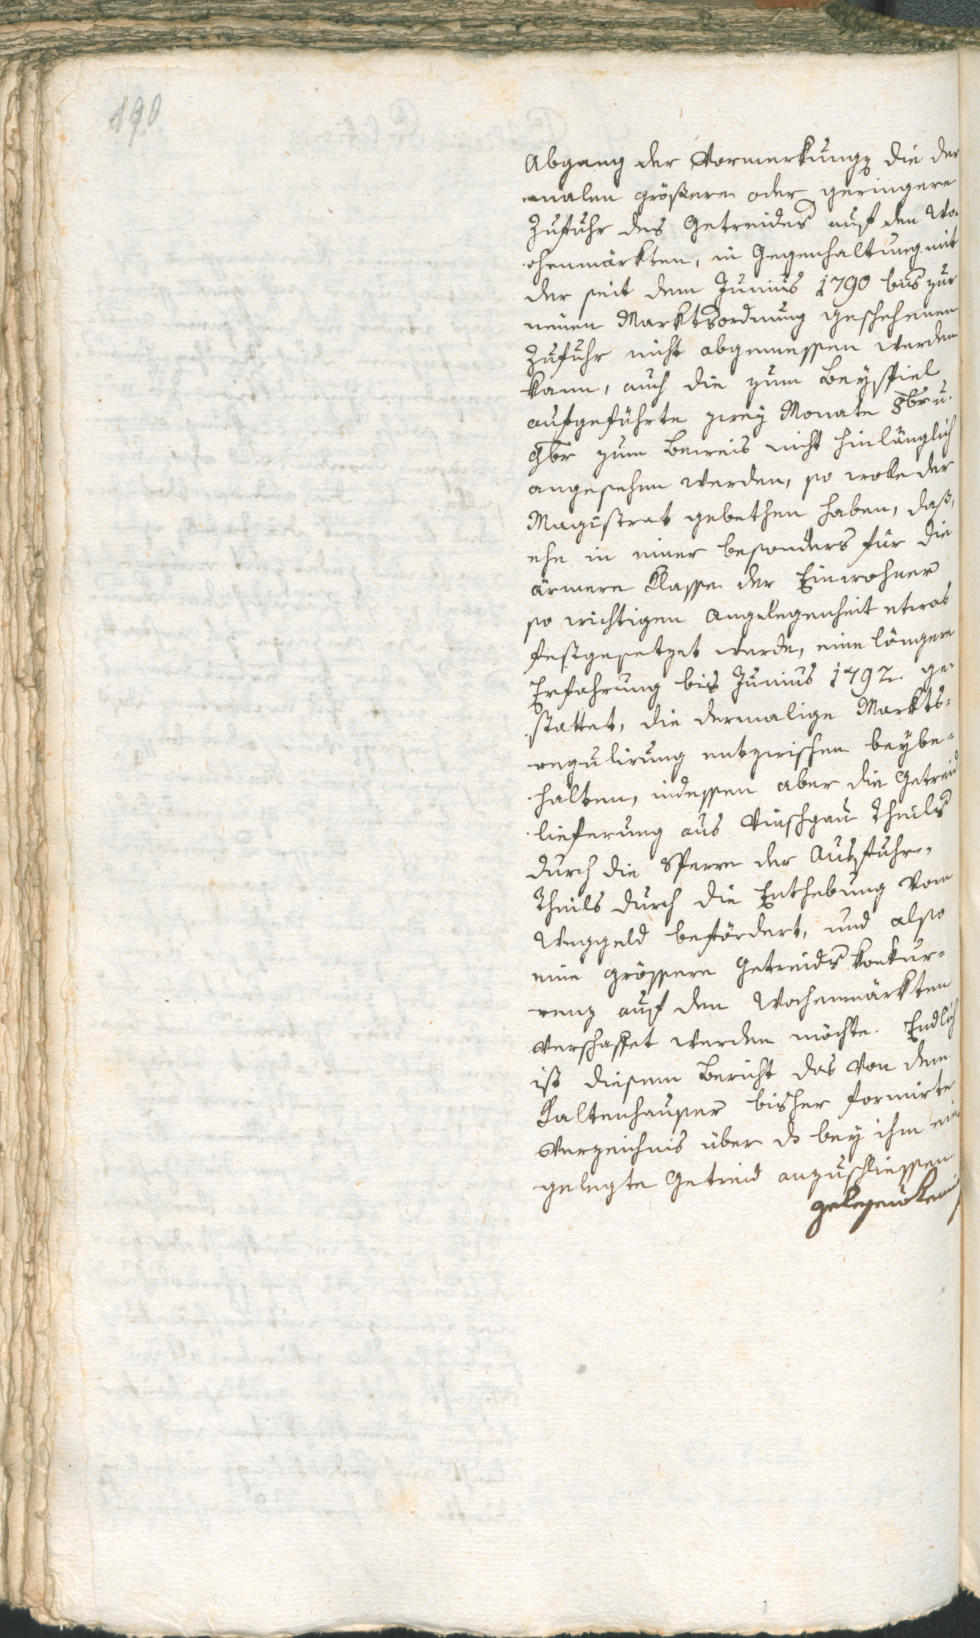 190
Abgang der Vormerkung, die der
malen größere oder geringere
Zufuhr des Getreides auf den Wo-
chenmärkten, in Gegenhaltung mit
der seit dem Junius 1790 bis zur
neuen Marktsordnung geschehenen
Zufuhr nicht abgemessen werden
kann, auch die zum Beyspiel
aufgeführte zwey Monate 8br u.
9br zum Beweis nicht hinlänglich
angesehen werden, so wolle der
Magistrat gebethen haben, daß,
ehe in einer besonders für die
ärmere Klasse der Einwohner
so wichtigen Angelegenheit etwas
festgesetzet werde, eine längere
Erfahrung bis Junius 1792. ge-
stattet, die dermalige Markts-
regulirung entzwischen beybe-
halten, indessen aber die Getreid
lieferung aus Vinschgau theils
durch die Sperre der Ausfuhr,
theils durch die Enthebung vom
Weggeld befördert, und also
eine grössere Getreids konkur-
renz auf den Wochenmärkten
verschaffet werden möchte. Endlich
ist diesem Bericht das von dem
Kaltenhauser bisher formirte
Verzeichnis über d bey ihm ein
gelegte Getreid anzuschliessen